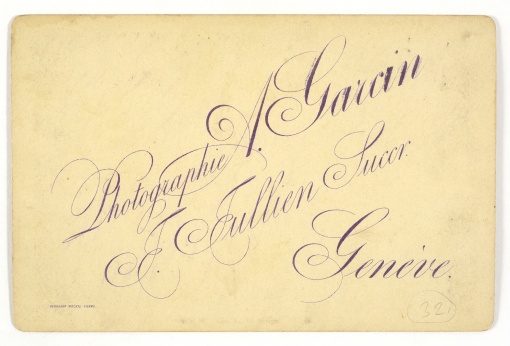 Photographie A. Garcin
F. Jullien Succr.
Genève.
32